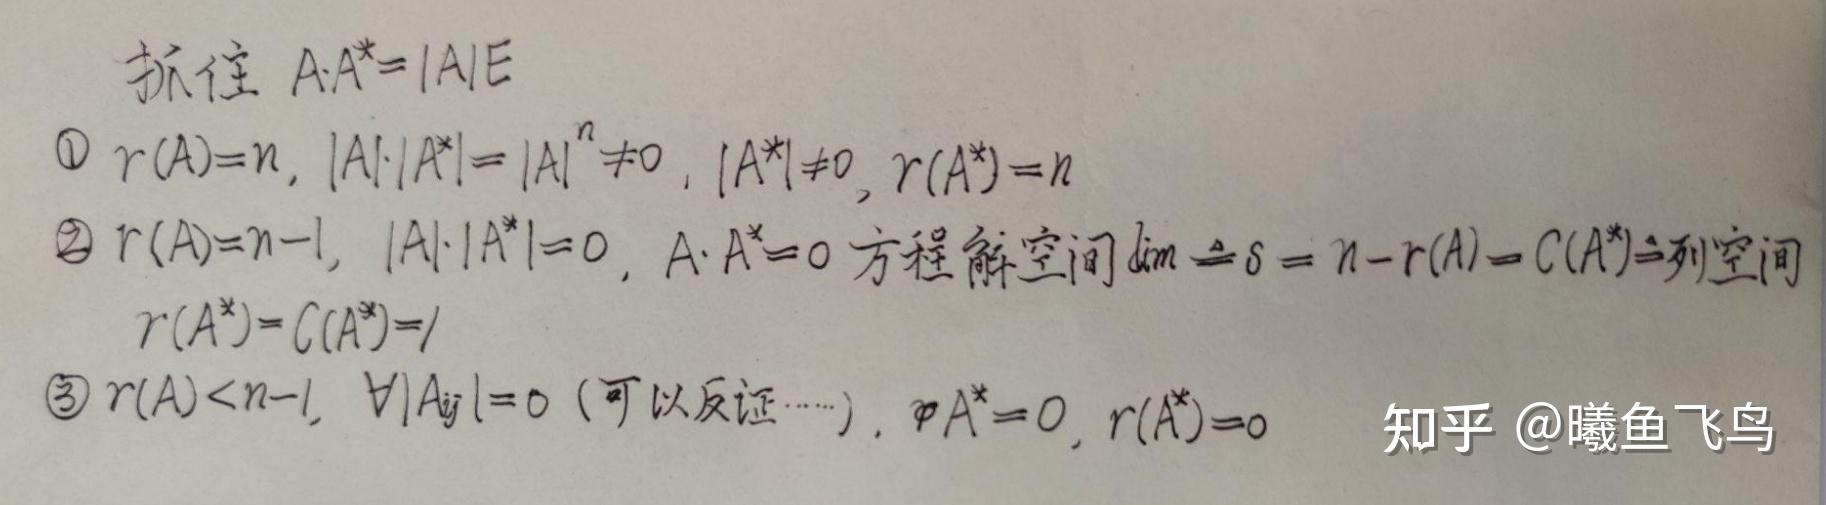 抓住 A·A*=|A|E
① r(A)=n, |A|·|A*|=|A|ⁿ≠0, |A*|≠0, r(A*)=n
② r(A)=n-1, |A|·|A*|=0, A·A*=0 方程解空间dim ≙ s = n-r(A) = C(A*)≙列空间
r(A*)=C(A*)=1
③ r(A)<n-1, ∀|Aij|=0 (可以反证……), A*=0, r(A*)=0
知乎 @曦鱼飞鸟